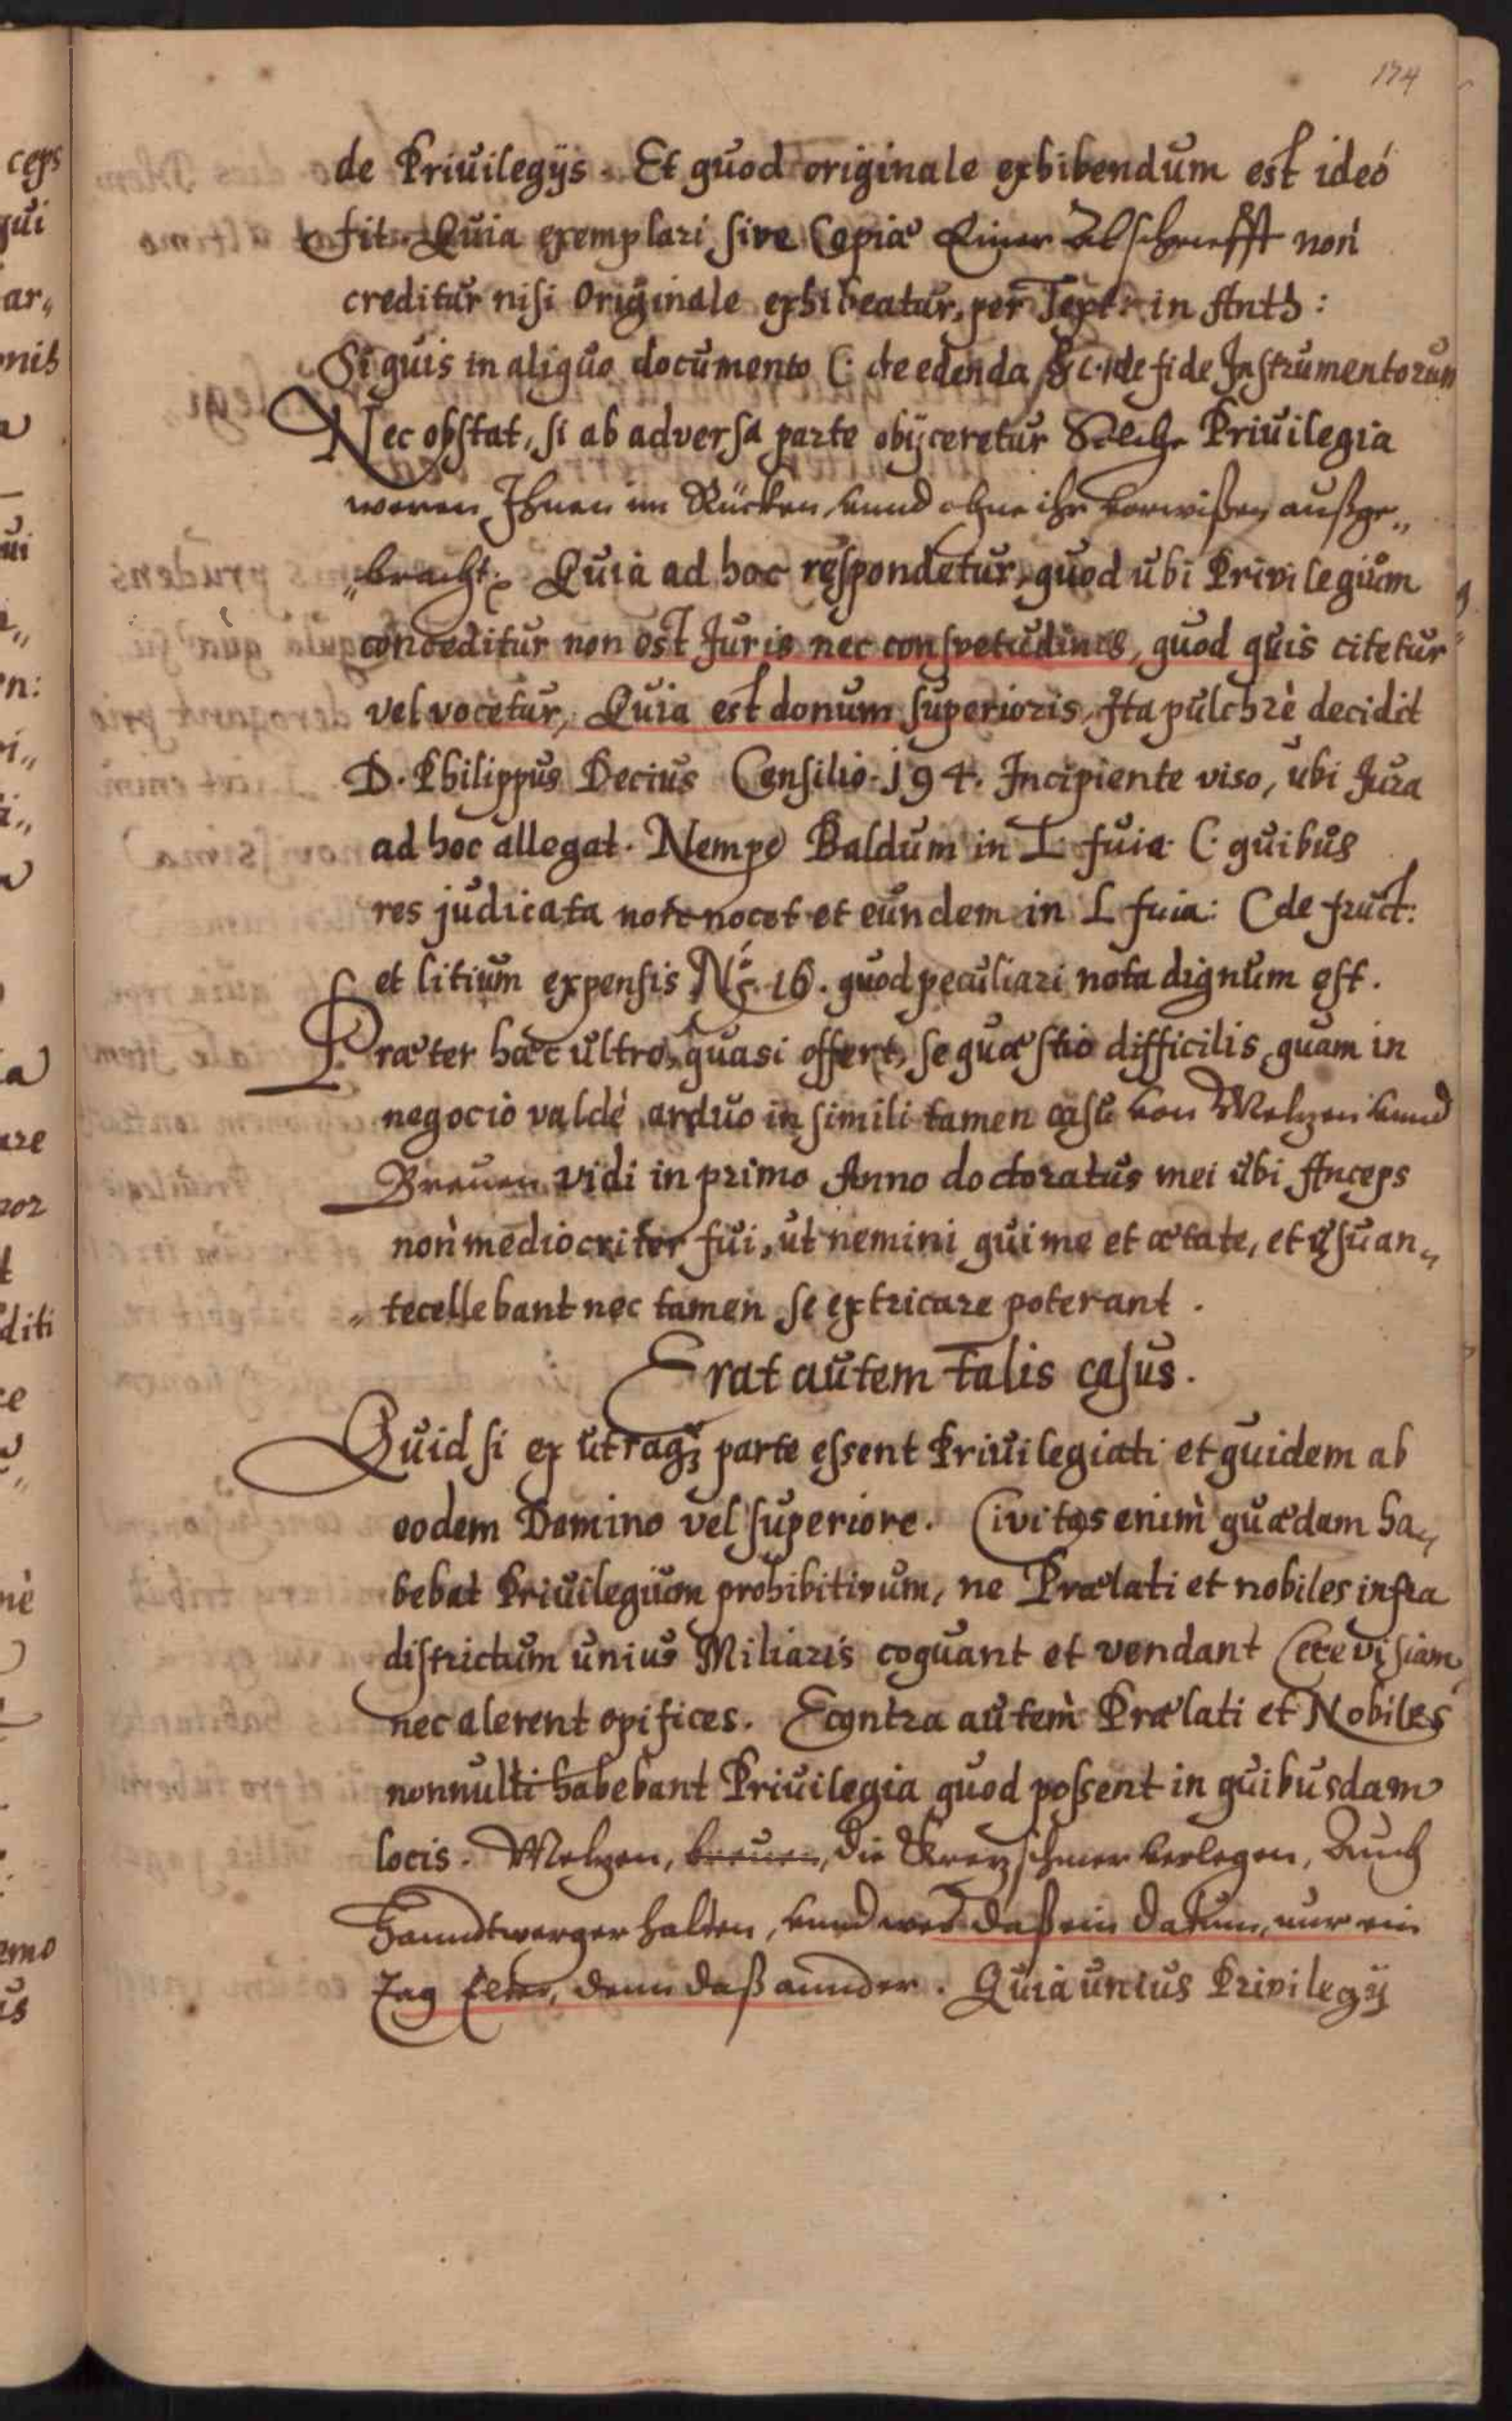 174
de Priuilegijs. Et quod originale exhibendum est ideó
fit. Quia exemplari sive Copiæ Einer Abschriefft non
creditur nisi Originale exhibeatur, per Text: in Auth:
Si quis in aliquo documento C. de edenda & C. de fide Instrumentorum
Nec obstat, si ab adversa parte obijceretur Solche Priuilegia
weren Ihnen im Rücken, vnnd ohne ihr vorwißen außge„
„bracht. Quia ad hoc respondetur, quod ubi Privilegium
conceditur non est Juris nec consvetudinis, quod quis citetur
vel vocetur, Quia est donum superioris, Ita pulchrè decidit
D. Philippus Decius Consilio. 194. Incipiente viso, ubi Jura
ad hoc allegat. Nempe Baldum in L fuia C. quibus
res judicata non nocet et eundem in L fuia: C de fruct:
et litium expensis No. 16. quod peculiari nota dignum est.
Præter hæc ultro, quasi offert, se quæstio difficilis, quam in
negocio valdé arduo in simili tamen casu von Meltzen vnnd
Breuen vidi in primo Anno doctoratus mei ubi Anceps
non mediocriter fui, ut nemini qui me et ætate, et usu an„
„tecellebant nec tamen se extricare poterant.
Erat autem talis casus.
Quid si ex utraq; parte essent Priuilegiati et quidem ab
eodem Domino vel superiore. Civitas enim quædam ha„
bebat Priuilegium prohibitivum, ne Prælati et nobiles infra
districtum unius Miliaris coquant et vendant Cerevisiam
nec alerent opifices. Econtra autem Prælati et Nobiles
nonnulli habebant Priuilegia quod possent in quibusdam
locis. Meltzen, breuen, die Kretzschmer verlegen, Auch
Hanndtwerger halten, vnnd wer daß ein datum, nur ein
Tag Elter, denn daß annder. Quia unius Privilegij